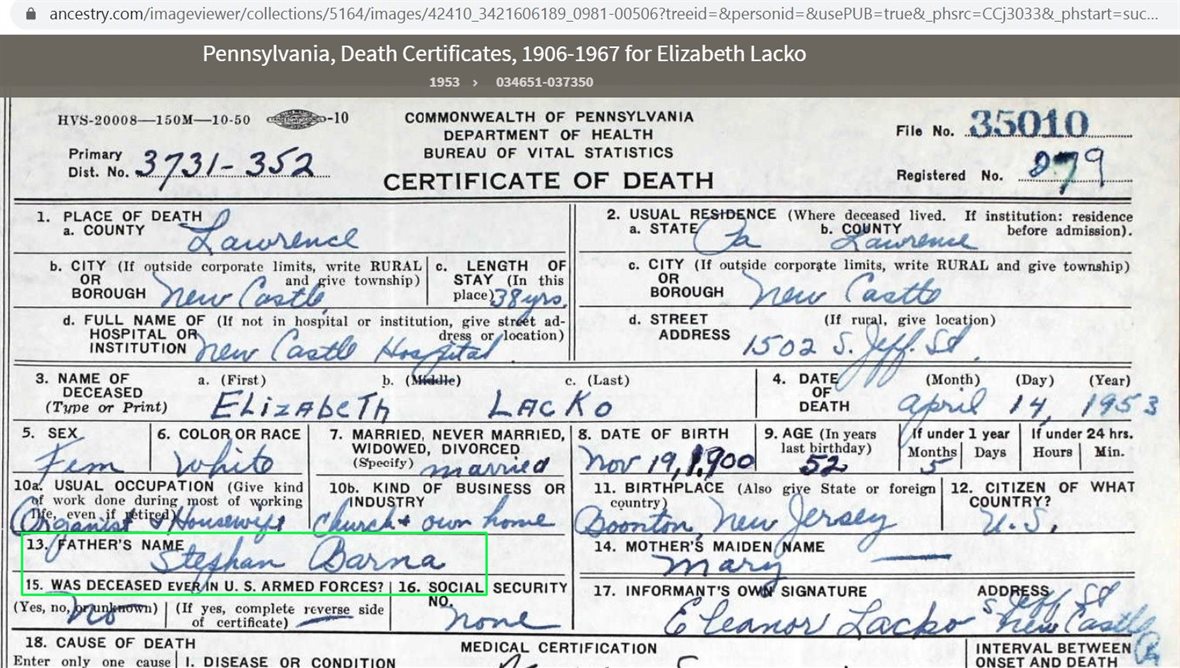 ancestry.com/imageviewer/collections/5164/images/42410_3421606189_0981-00506?treeid=&personid=&usePUB=true&_phsrc=CCj3033&_phstart=suc...
Pennsylvania, Death Certificates, 1906-1967 for Elizabeth Lacko
1953 › 034651-037350
HVS-20008—150M—10-50 -10
COMMONWEALTH OF PENNSYLVANIA
DEPARTMENT OF HEALTH
BUREAU OF VITAL STATISTICS
CERTIFICATE OF DEATH
File No. 35010
Primary
Dist. No. 3731-352
Registered No. 879
1. PLACE OF DEATH
a. COUNTY Lawrence
2. USUAL RESIDENCE (Where deceased lived. If institution: residence
before admission).
a. STATE Pa b. COUNTY Lawrence
b. CITY (If outside corporate limits, write RURAL
OR and give township)
BOROUGH New Castle
c. LENGTH OF
STAY (In this
place) 38 yrs.
c. CITY (If outside corporate limits, write RURAL and give township)
OR
BOROUGH New Castle
d. FULL NAME OF (If not in hospital or institution, give street ad-
HOSPITAL OR dress or location)
INSTITUTION New Castle Hospital
d. STREET (If rural, give location)
ADDRESS 1502 S. Jeff. St.
3. NAME OF a. (First) b. (Middle) c. (Last)
DECEASED
(Type or Print) ELIZABETH LACKO
4. DATE (Month) (Day) (Year)
OF
DEATH April 14, 1953
5. SEX
Fem
6. COLOR OR RACE
White
7. MARRIED, NEVER MARRIED,
WIDOWED, DIVORCED
(Specify) married
8. DATE OF BIRTH
Nov 19, 1900
9. AGE (In years
last birthday)
52
If under 1 year
Months Days
5
If under 24 hrs.
Hours Min.
10a. USUAL OCCUPATION (Give kind
of work done during most of working
life, even if retired)
Organist & Housewife
10b. KIND OF BUSINESS OR
INDUSTRY
Church & own home
11. BIRTHPLACE (Also give State or foreign
country)
Boonton, New Jersey
12. CITIZEN OF WHAT
COUNTRY?
U.S.
13. FATHER'S NAME
Stephan Barna
14. MOTHER'S MAIDEN NAME
Mary
15. WAS DECEASED EVER IN U. S. ARMED FORCES?
(Yes, no, or unknown) (If yes, complete reverse side
of certificate)
No
16. SOCIAL SECURITY
NO.
none
17. INFORMANT'S OWN SIGNATURE ADDRESS
Eleanor Lacko S Jeff St
New Castle
18. CAUSE OF DEATH
Enter only one cause
MEDICAL CERTIFICATION
I. DISEASE OR CONDITION
INTERVAL BETWEEN
ONSET AND DEATH